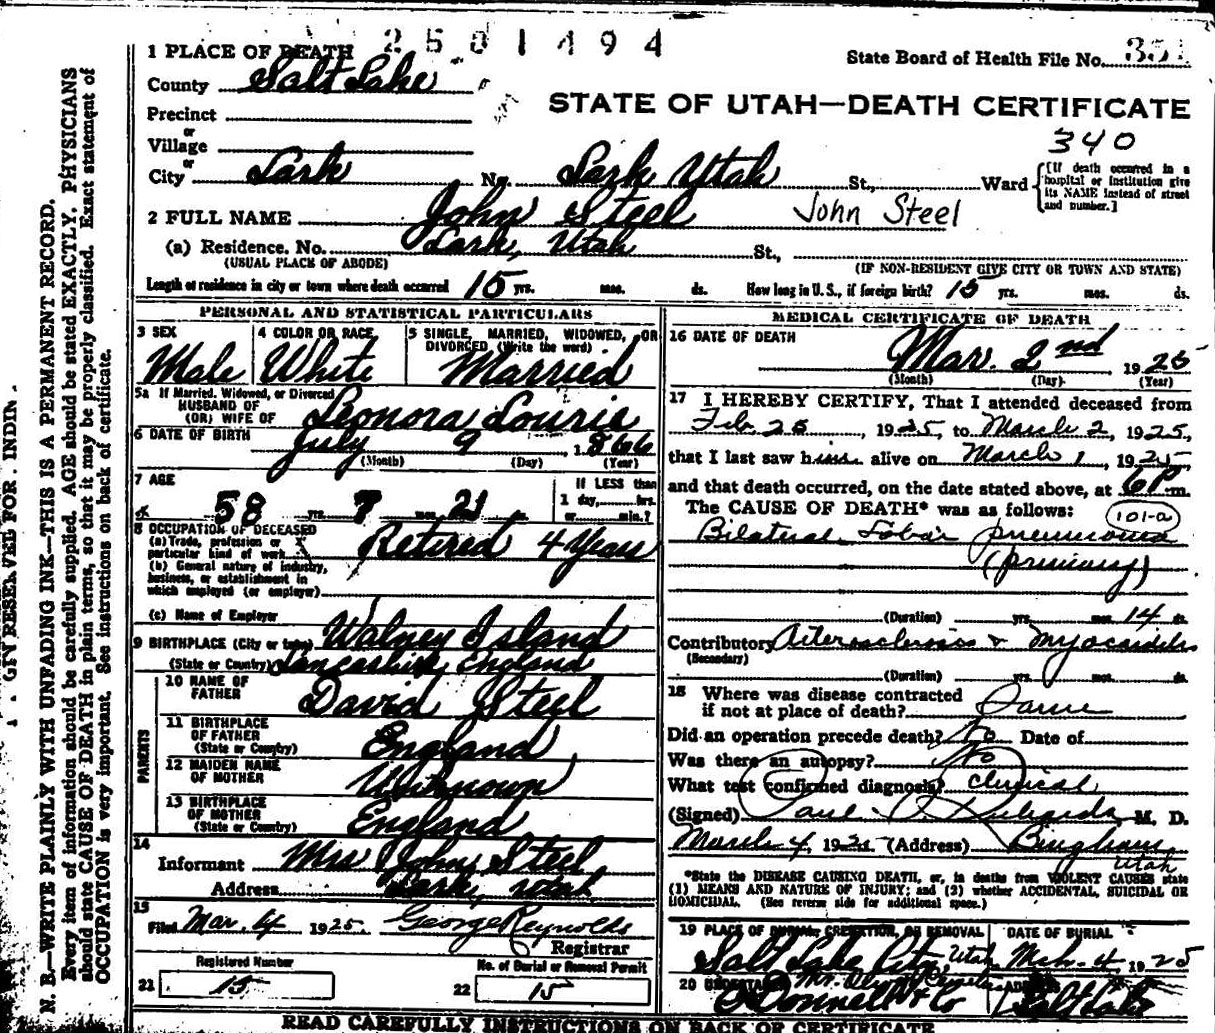 2501494
State Board of Health File No. 351
STATE OF UTAH—DEATH CERTIFICATE
340
1 PLACE OF DEATH
County Salt Lake
Precinct
or
Village
or
City Lark No. Lark Utah St., Ward
[If death occurred in a
hospital or institution give
its NAME instead of street
and number.]
2 FULL NAME John Steel John Steel
(a) Residence. No. Lark, Utah St.,
(USUAL PLACE OF ABODE) (IF NON-RESIDENT GIVE CITY OR TOWN AND STATE)
Length of residence in city or town where death occurred 15 yrs. mos. ds. How long in U. S., if foreign birth? 15 yrs. mos. ds.
PERSONAL AND STATISTICAL PARTICULARS
3 SEX
Male
4 COLOR OR RACE
White
5 SINGLE, MARRIED, WIDOWED, OR
DIVORCED (Write the word)
Married
5a If Married, Widowed, or Divorced
HUSBAND OF
(OR) WIFE OF Leonora Lourie
6 DATE OF BIRTH
July 9, 1866
(Month) (Day) (Year)
7 AGE
58 yrs. 7 mos. 21
If LESS than
1 day, hrs.
or min.?
8 OCCUPATION OF DECEASED
(a) Trade, profession or
particular kind of work Retired 4 Years
(b) General nature of industry,
business, or establishment in
which employed (or employer)
(c) Name of Employer
9 BIRTHPLACE (City or town) Walney Island
(State or Country) Lancashire, England
PARENTS
10 NAME OF
FATHER David Steel
11 BIRTHPLACE
OF FATHER
(State or Country) England
12 MAIDEN NAME
OF MOTHER Unknown
13 BIRTHPLACE
OF MOTHER
(State or Country) England
14
Informant Mrs John Steel
Address Lark, Utah
15
Filed Mar. 4 1925. George Reynolds
Registrar
Registered Number
21 15
No. of Burial or Removal Permit
22 15
MEDICAL CERTIFICATE OF DEATH
16 DATE OF DEATH
Mar. 2nd 1925
(Month) (Day) (Year)
17 I HEREBY CERTIFY, That I attended deceased from
Feb. 25, 1925, to March 2, 1925,
that I last saw him alive on March 1, 1925
and that death occurred, on the date stated above, at 6 P.m.
The CAUSE OF DEATH* was as follows: 101-a
Bilateral Lobar pneumonia
(primary)
(Duration) yrs. mos. 14 ds.
Contributory Arterosclerosis & Myocarditis
(Secondary)
(Duration) yrs. mos. ds.
18 Where was disease contracted
if not at place of death? Same
Did an operation precede death? No Date of
Was there an autopsy? No
What test confirmed diagnosis? Clinical
(Signed) Paul S. Richards, M. D.
March 4, 1925 (Address) Bingham
Utah
*State the DISEASE CAUSING DEATH, or, in deaths from VIOLENT CAUSES state
(1) MEANS AND NATURE OF INJURY; and (2) whether ACCIDENTAL, SUICIDAL OR
HOMICIDAL. (See reverse side for additional space.)
19 PLACE OF BURIAL, CREMATION, OR REMOVAL
Salt Lake City, Utah
DATE OF BURIAL
Mch. 4, 1925
20 UNDERTAKER Mt. Olivet Cemetery
O'Donnell & Co
ADDRESS
Salt Lake
READ CAREFULLY INSTRUCTIONS ON BACK OF CERTIFICATE
GIN RESERVED FOR
N. B.—WRITE PLAINLY WITH UNFADING INK—THIS IS A PERMANENT RECORD.
Every item of information should be carefully supplied. AGE should be stated EXACTLY. PHYSICIANS
should state CAUSE OF DEATH in plain terms, so that it may be properly classified. Exact statement of
OCCUPATION is very important. See instructions on back of certificate.